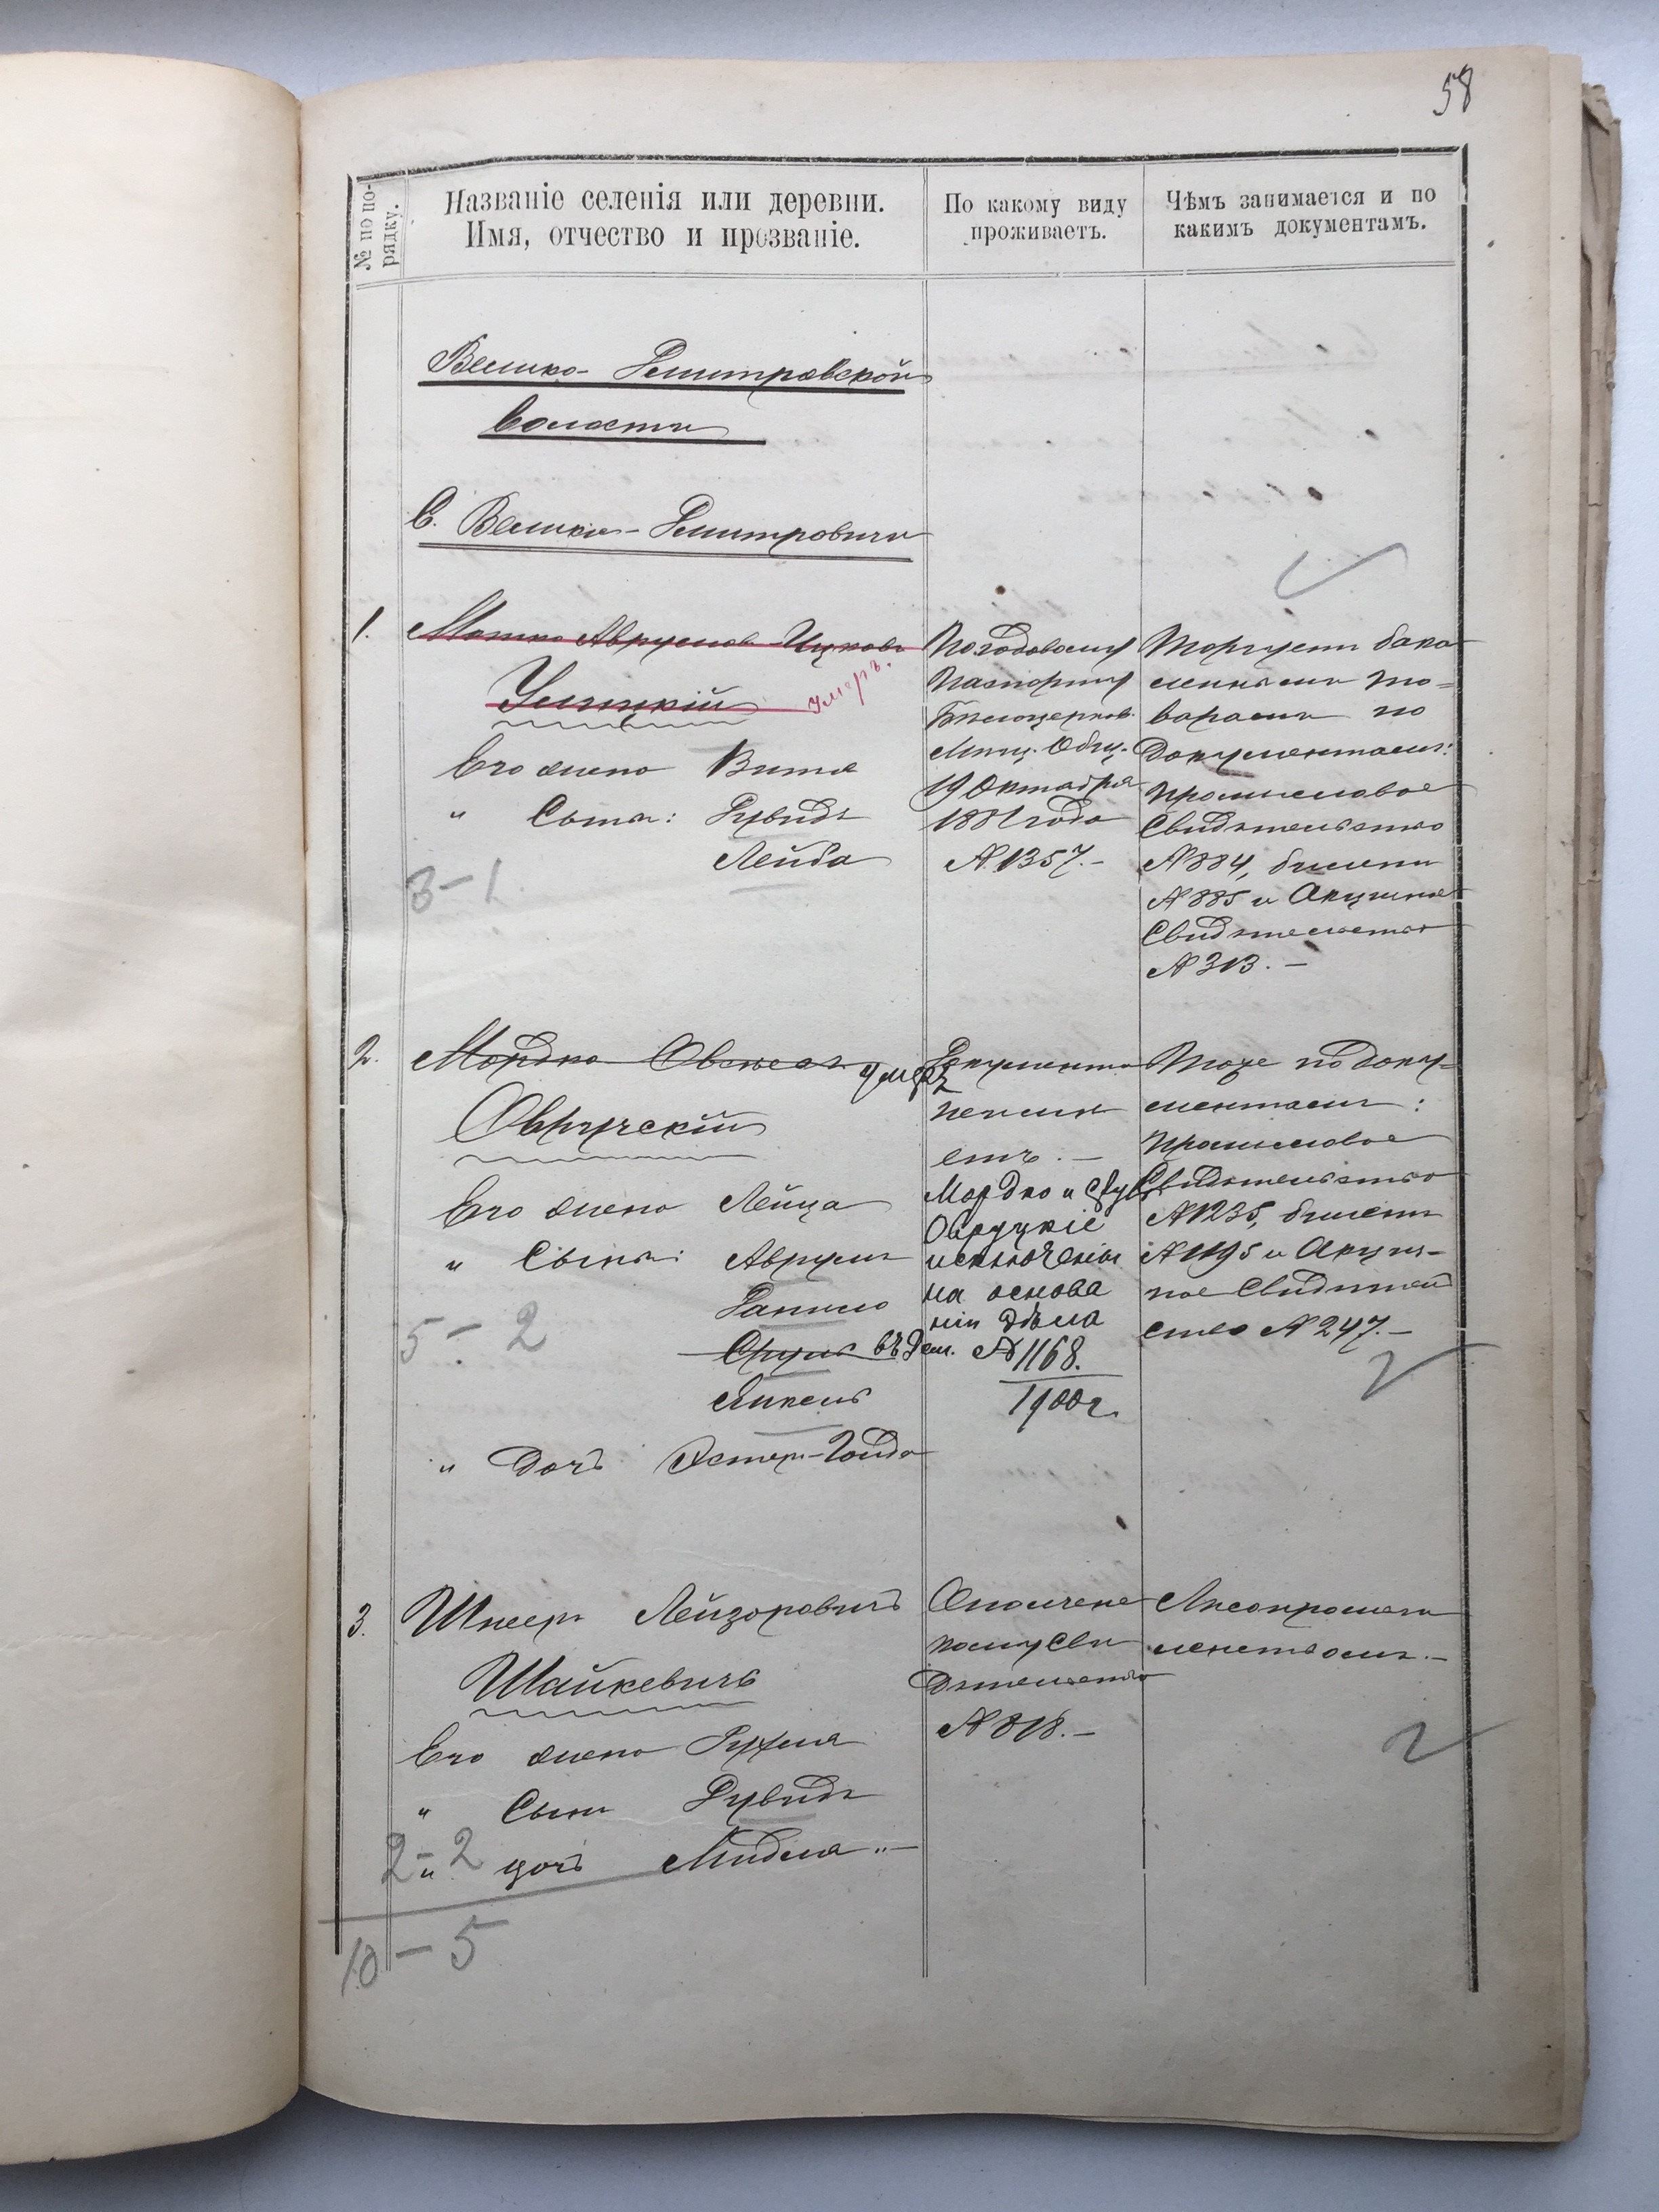 58
№ по по-
рядку.
Названіе селенія или деревни.
Имя, отчество и прозваніе.
По какому виду
проживаетъ.
Чѣмъ занимается и по
какимъ документамъ.
Велико-Дмитровской
волости
С. Велики-Дмитровичи
1.
Мошко Аврумов Ицковъ
умеръ.
Его жена Витя
" Сыны: Дувидъ
Лейба
3-1
По годовому
паспорту
Бѣлоцерков.
Мѣщ. Общ.
19 Октября
1881 года
№ 1357.-
Торгуетъ бака
лейными то=
варами по
документамъ:
промысловое
свидѣтельство
№ 884, билетъ
№ 885 и Акцизное
свидѣтельство
№ 313.-
2.
Мордко Овсеев умеръ
Овручскій
Его жена Лейца
" Сыны: Аврумъ
Данило
Сруль въ Дем.
Янкель
" Дочь Эстер-Гольда
5-2
Документа
не имѣ
етъ.-
Мордко и Сруль
Овруцкіе
исключены
на основа
ніи дѣла
№ 1168.
1900 г.
Тоже по доку=
ментамъ:
промысловое
Свидѣтельство
№ 1235, билетъ
№ 1195 и Акциз-
ное Свидѣтель
ство № 247.-
3.
Шнеер Лейзоровичъ
Шайкевичъ
Его жена Рухля
" Сынъ Дувидъ
" дочь Миндля "-
2-2
10-5
Ополчен
ному сви
дѣтельству
№ 818.-
Лѣсопромыш
ленствомъ.-